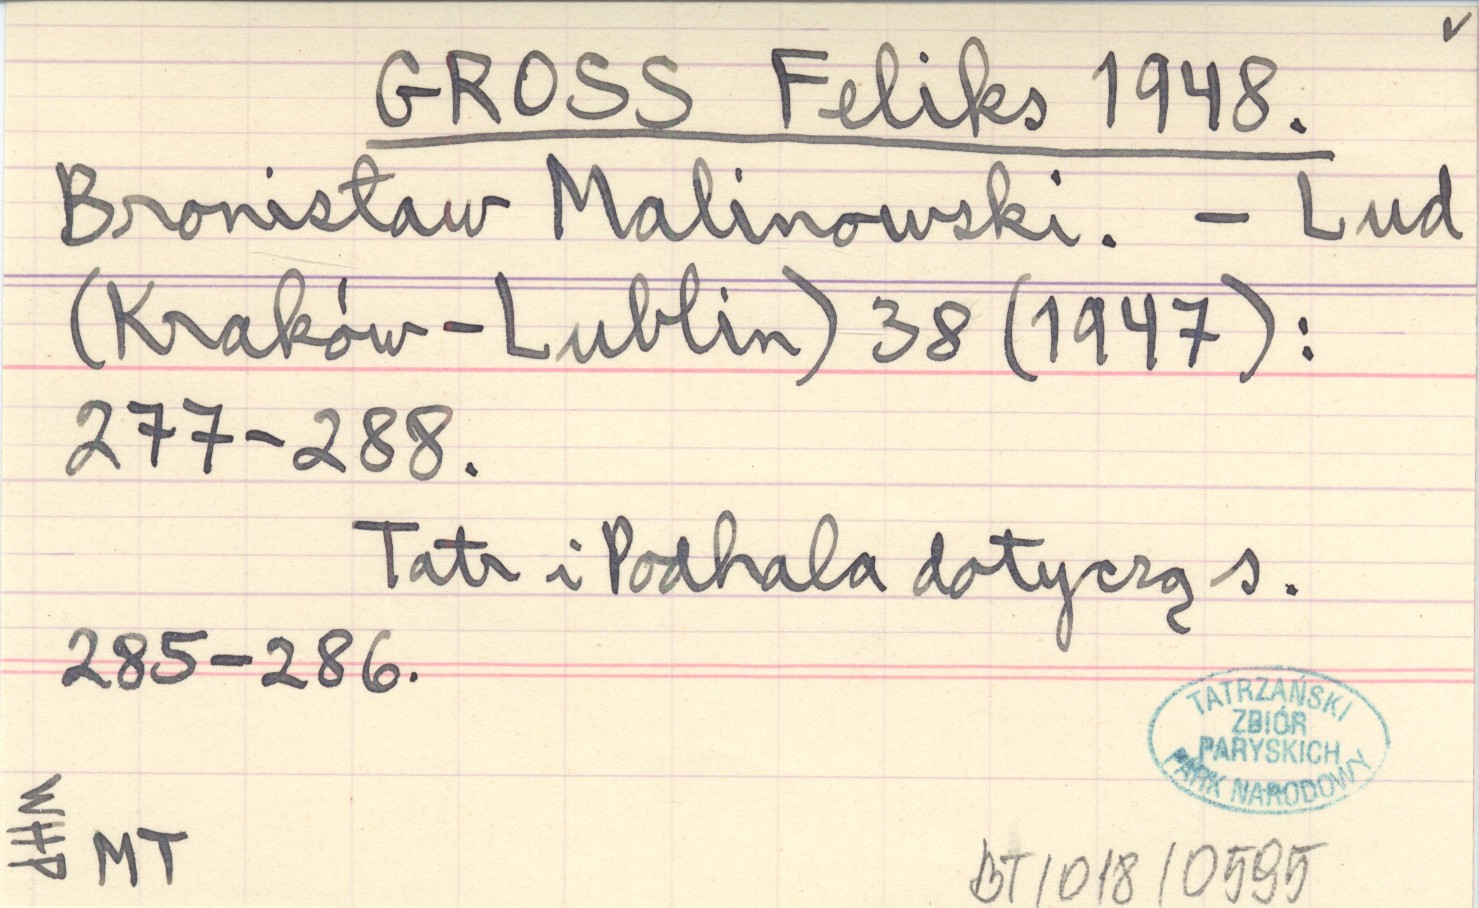 ✓
GROSS Feliks 1948.
Bronisław Malinowski. – Lud
(Kraków–Lublin) 38 (1947):
277–288.
Tatr i Podhala dotyczą s.
285–286.
TATRZAŃSKI
ZBIÓR
PARYSKICH
PARK NARODOWY
WHP
MT
BT/018/0595